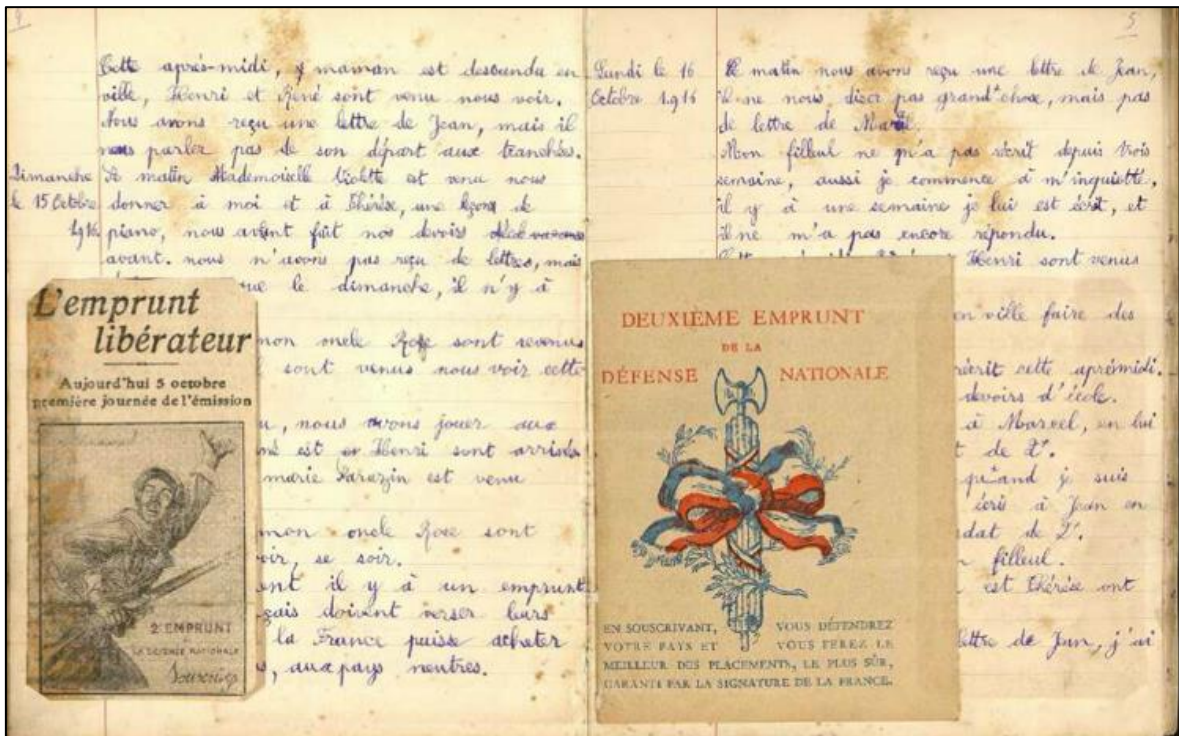 4
Cette après-midi, maman est descendu en
ville, Henri et René sont venu nous voir.
Nous avons reçu une lettre de Jean, mais il
nous parler pas de son départ aux tranchées.
Dimanche
le 15 Octobre
1916
Le matin Mademoiselle Violette est venu nous
donner à moi et à Thérèse, une leçon de
piano, nous avant fait nos devoirs
avant. nous n'avons pas reçu de lettres, mais
que le dimanche, il n'y à
mon oncle Rose sont revenus
sont venus nous voir cette
, nous avons jouer aux
est Henri sont arrivés
marie Sarazin est venu
mon oncle Rose sont
voir, se soir.
ent il y à un emprunt
çais doivent verser leurs
la France puisse acheter
, aux pays neutres.
L'emprunt
libérateur
Aujourd'hui 5 octobre
première journée de l'émission
2e EMPRUNT
DE
LA DÉFENSE NATIONALE
Souscrivez
5
Lundi le 16
Octobre 1916
Le matin nous avons reçu une lettre de Jean,
il ne nous diser pas grand'chose, mais pas
de lettre de Marcel.
Mon filleul ne m'a pas écrit depuis trois
semaine, aussi je commence à m'inquietté,
il y à une semaine je lui est écrit, et
il ne m'a pas encore répondu.
Henri sont venus
en ville faire des
écrit cette aprèsmidi.
devoirs d'école.
à Marcel, en lui
de 2f.
quand je suis
écris à Jean en
dat de 2f.
filleul.
est Thérèse ont
lettre de Jean, j'ai
DEUXIÈME EMPRUNT
DE LA
DÉFENSE NATIONALE
EN SOUSCRIVANT, VOUS DÉFENDREZ
VOTRE PAYS ET VOUS FEREZ LE
MEILLEUR DES PLACEMENTS, LE PLUS SÛR,
GARANTI PAR LA SIGNATURE DE LA FRANCE.